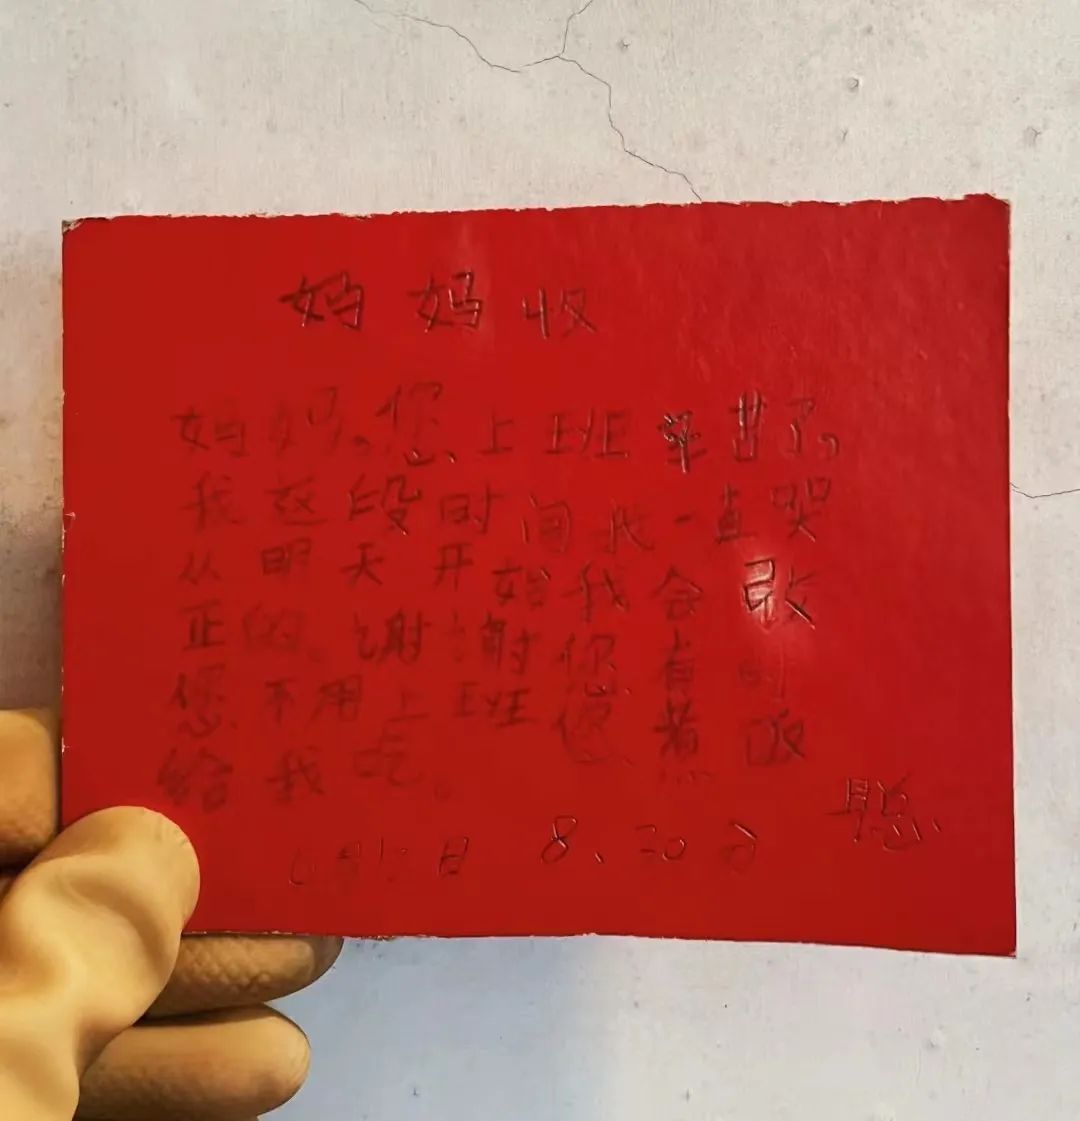 妈妈收
妈妈。您上班辛苦了。
我这段时间我一直哭
从明天开始我会改
正的。谢谢您有时
您不用上班您煮饭
给我吃。
聪
月 日 8、30分